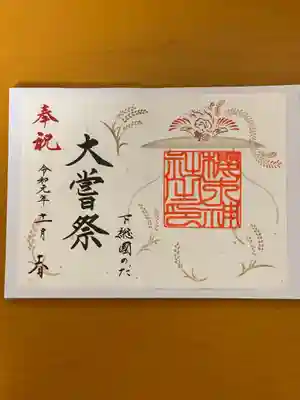 下総國のだ
櫻木神社之印
大嘗祭
奉祝
令和元年十一月 吉